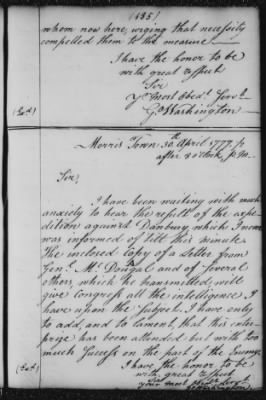 (185)
whom now here, urging that necessity
compelled them to the measure
I have the honor to be
with great respect
Sir
Yr. most Obedt. Servt.
Go. Washington
Morris Town 30th April 1777. ½
after 2 o'Clock, P.M.
Sir,
I have been waiting with much
anxiety to hear the result of the expe-
dition against Danbury, which I never
was informed of till this minute.
The inclosed Copy of a Letter from
Genl. Mc.Dougal and of several
others, which he transmitted, will
give Congress all the intelligence I
have upon the Subject. I have only
to add, and to lament, that this enter-
prize has been attended but with too
much Success on the part of the Enemy.
I have the honor to be
with great respect
your most obedt. Servt.
Go. Washington